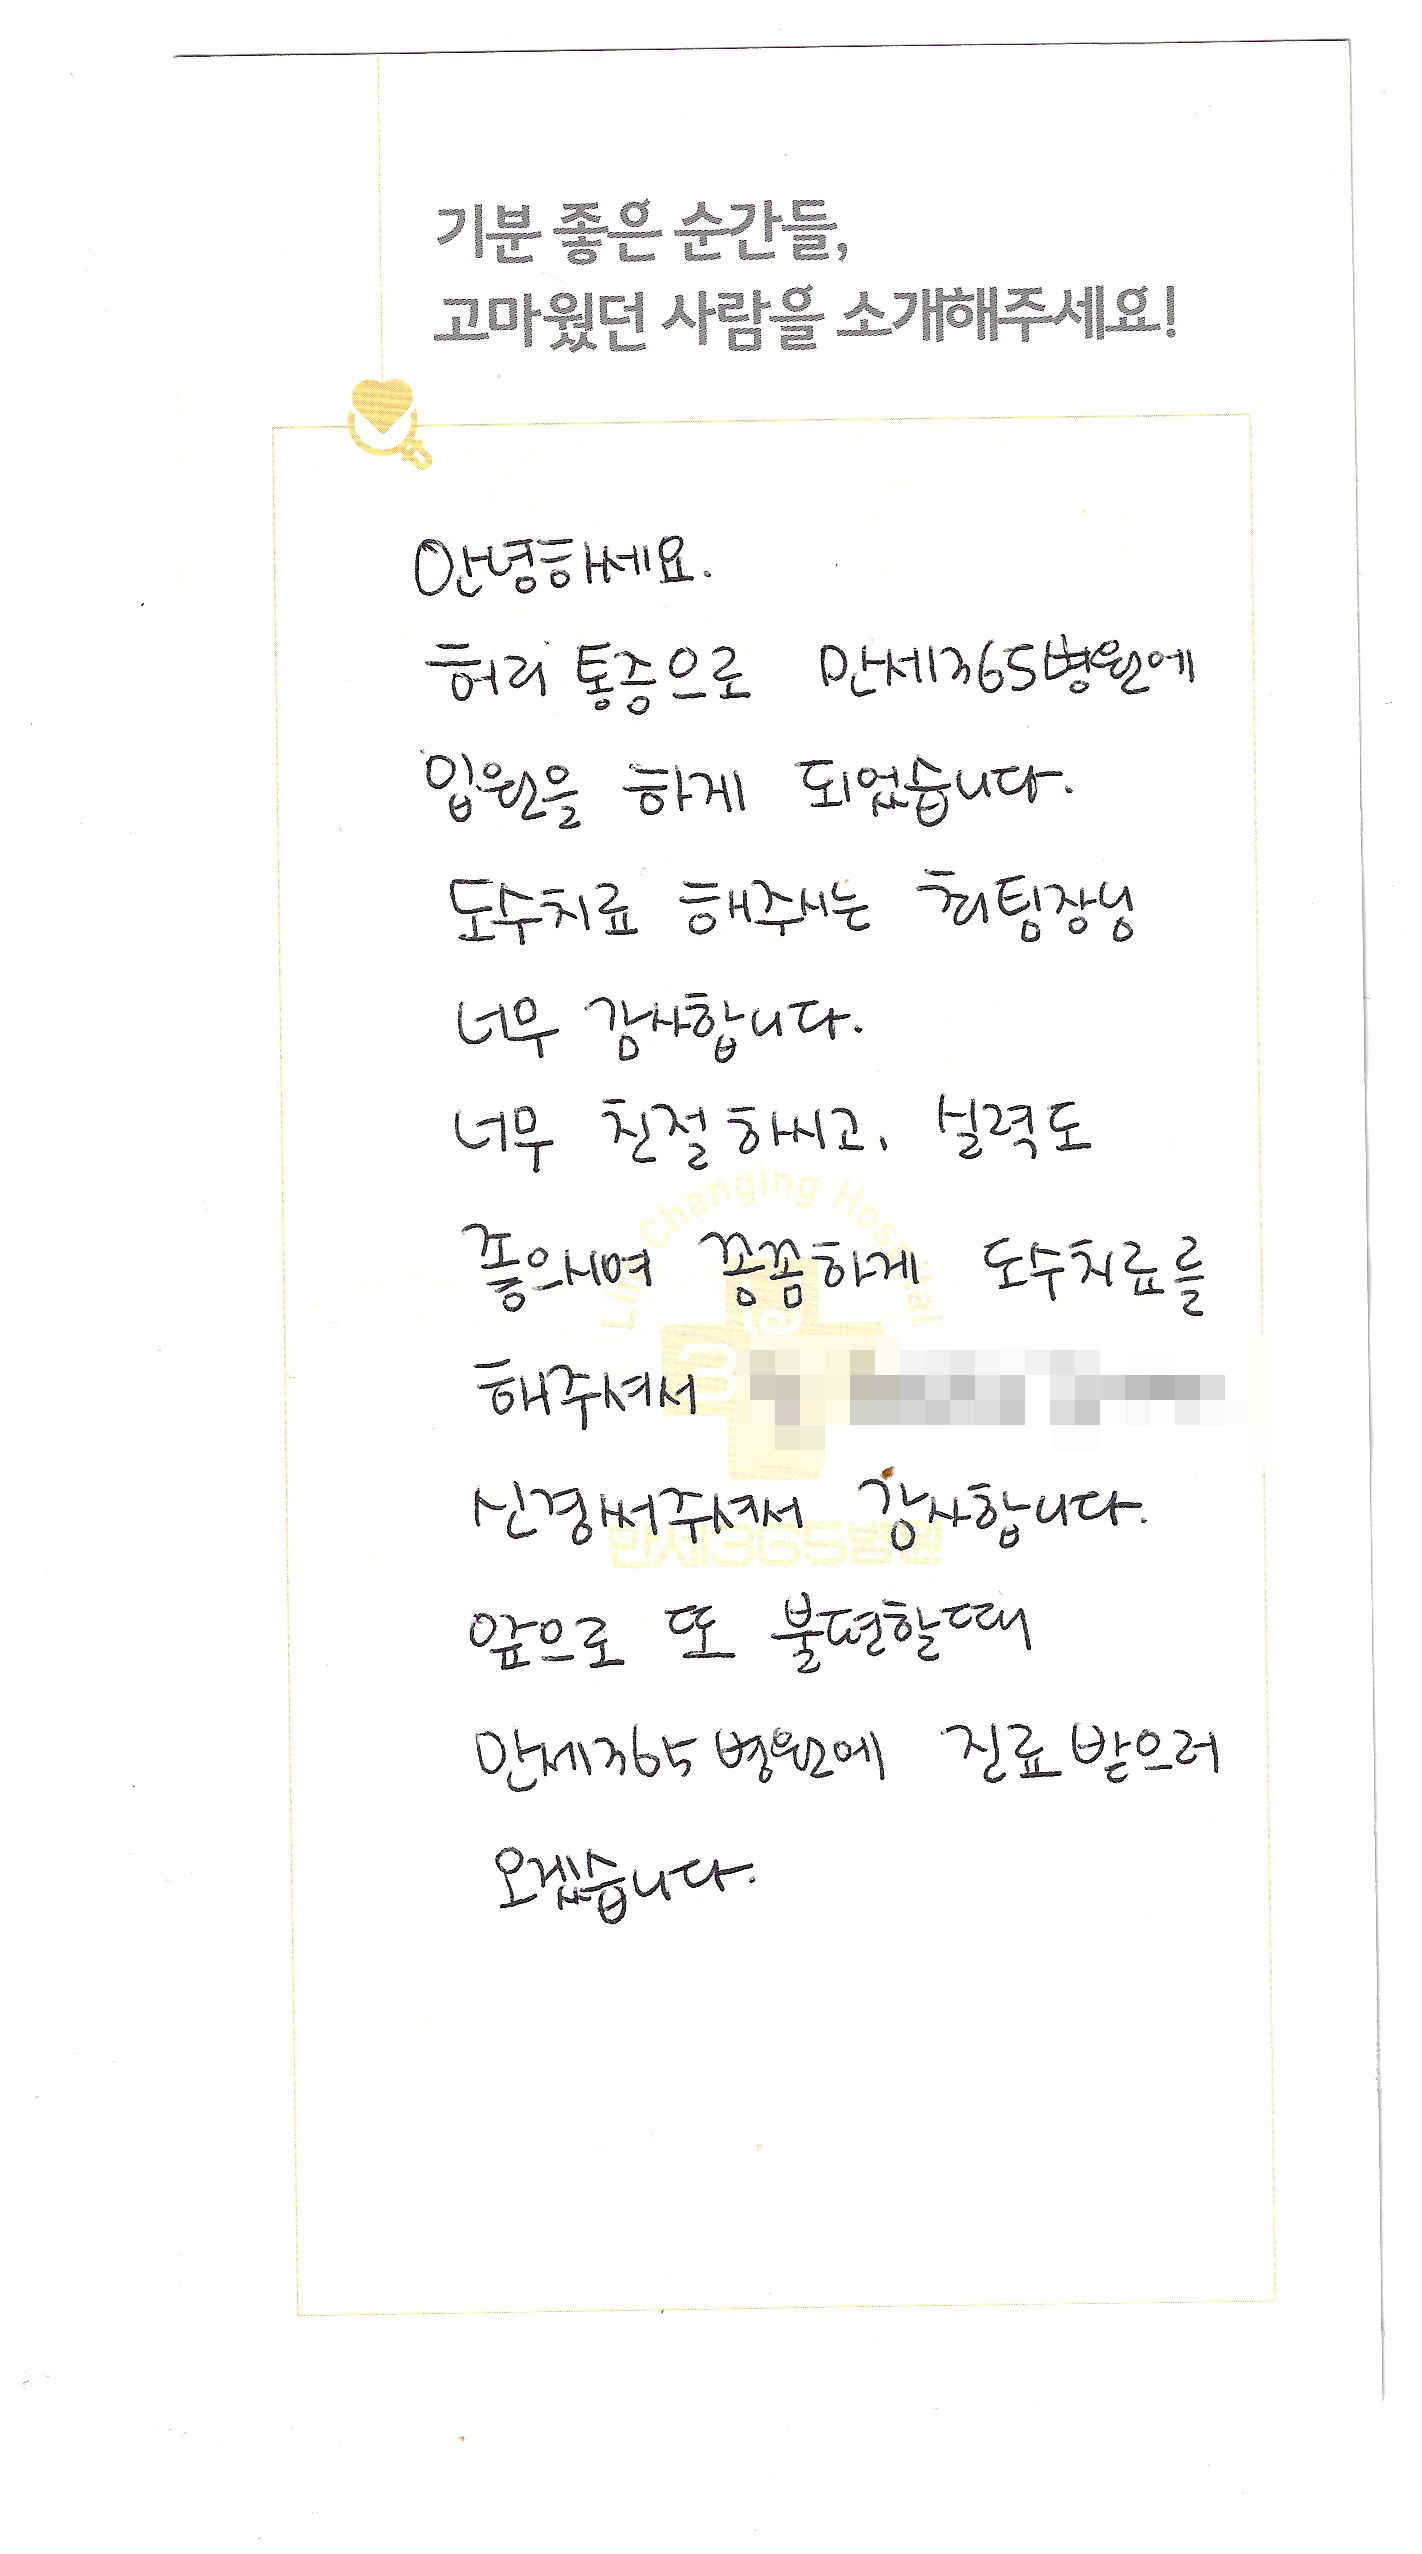 기분 좋은 순간들,
고마웠던 사람을 소개해주세요!
안녕하세요.
허리 통증으로 만세365병원에
입원을 하게 되었습니다.
도수치료 해주시는 최팀장님
너무 감사합니다.
너무 친절하시고, 실력도
좋으시며 꽁꼼하게 도수치료를
해주셔서
신경써주셔서 감사합니다.
앞으로 또 불편할때
만세365병원에 진료받으러
오겠습니다.
Life Changing Hospital
만세365병원